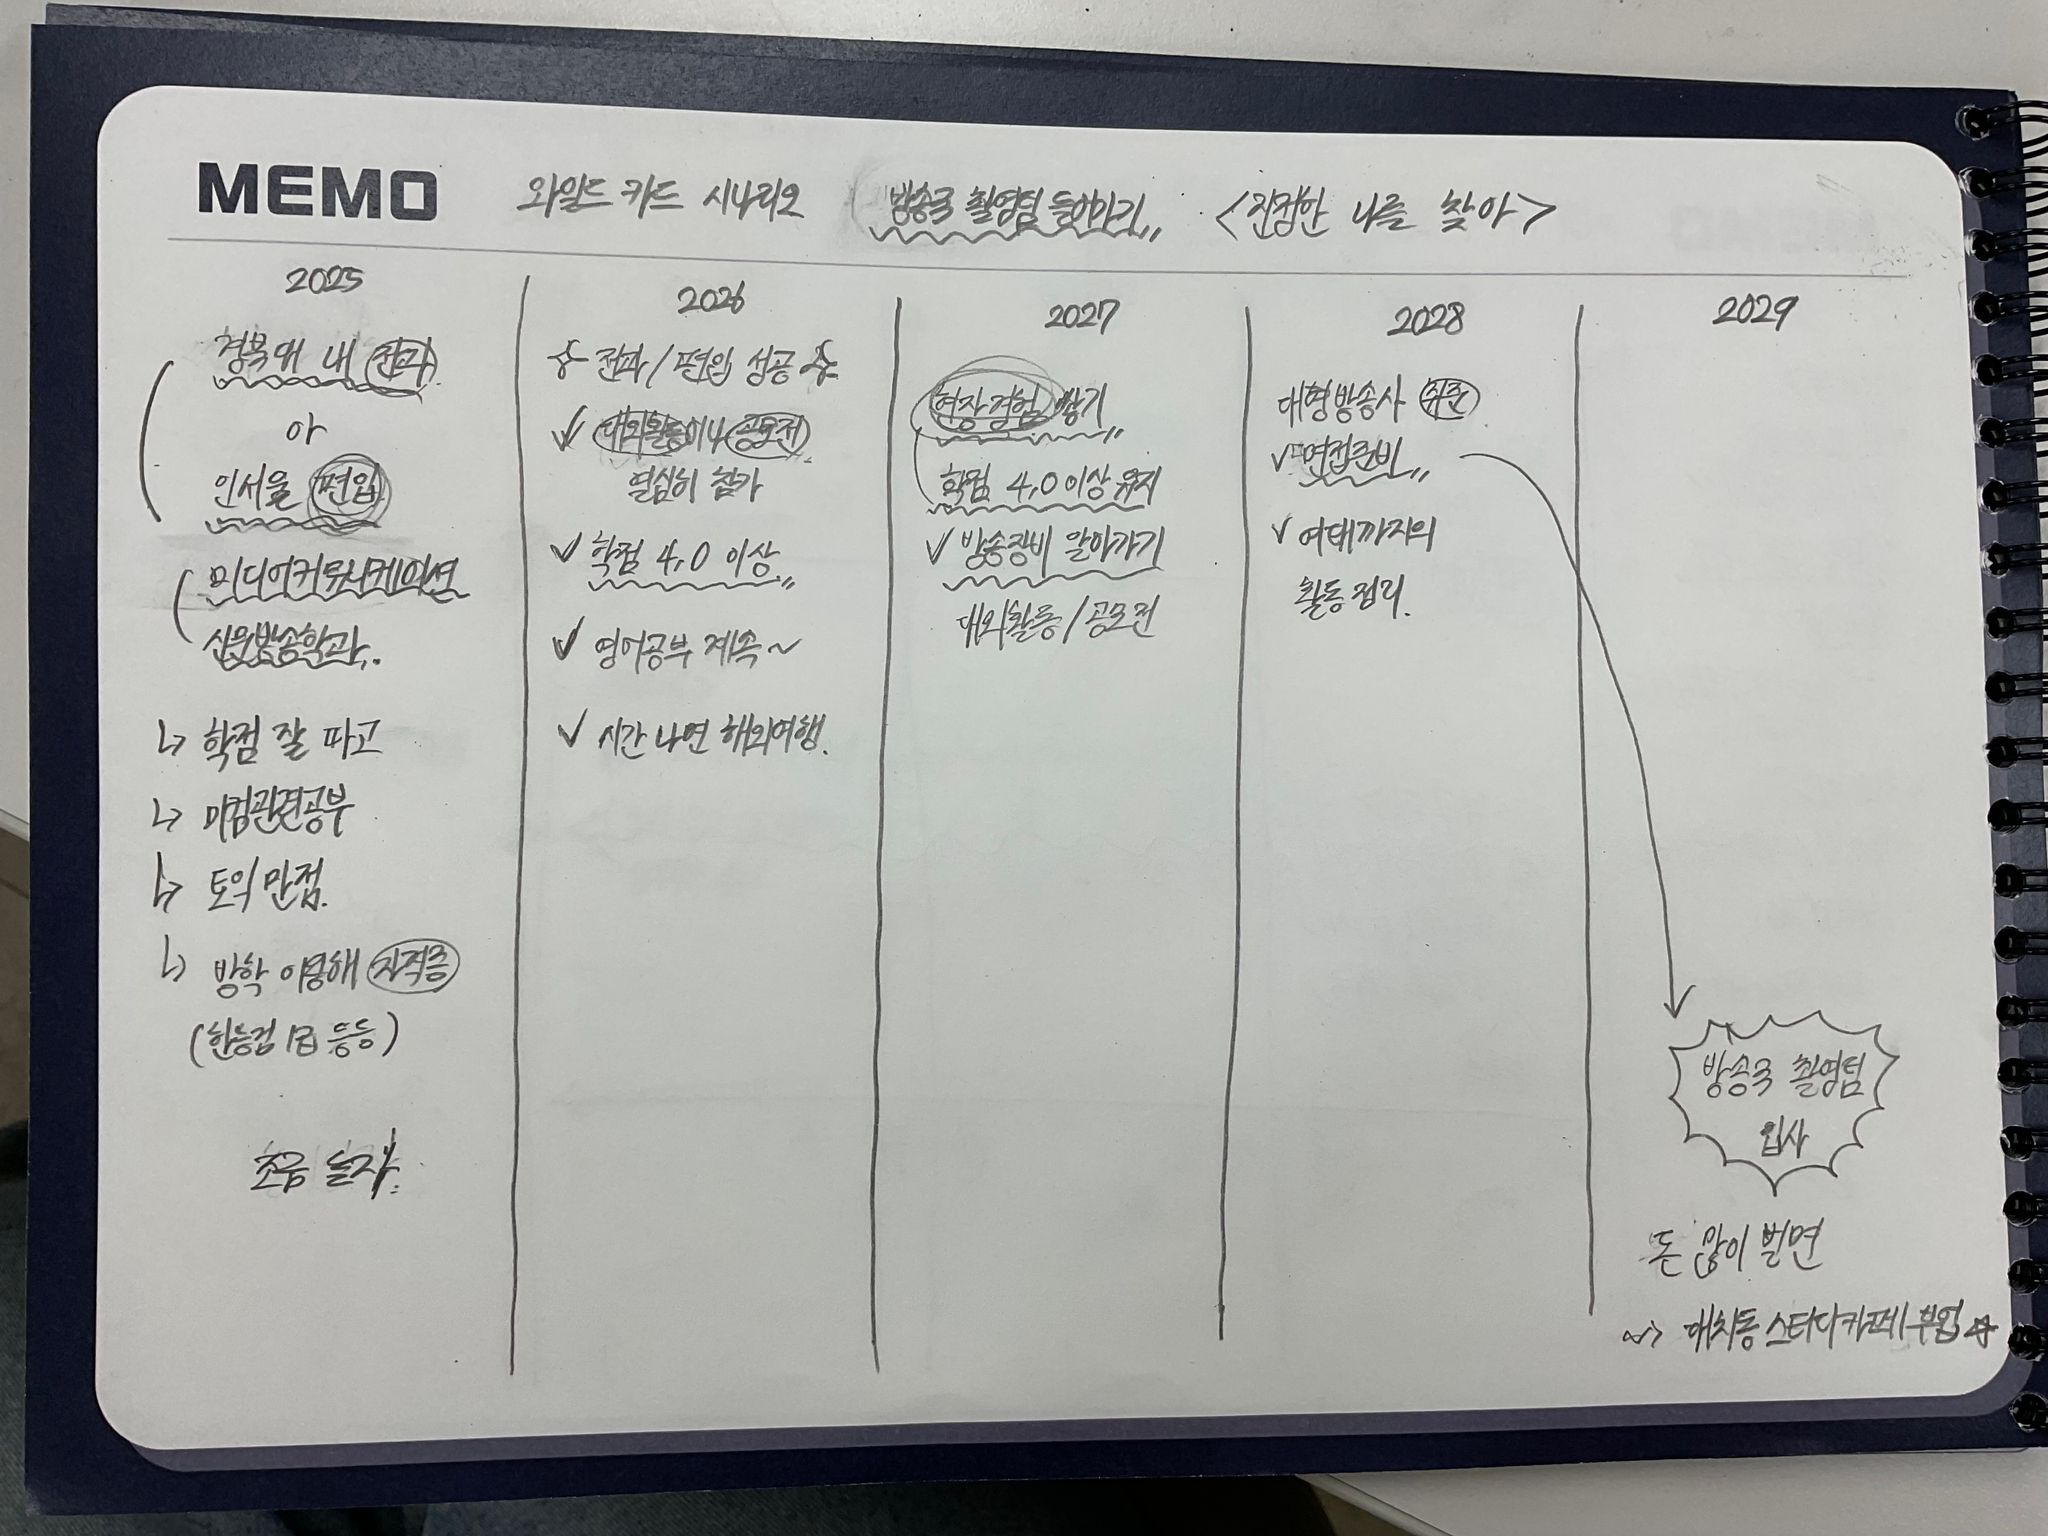 MEMO 와일드 카드 시나리오 방송국 촬영팀 들어가기,, <진정한 나를 찾아>
2025
경북대 내 전과
or
인서울 편입
미디어커뮤니케이션
신문방송학과..
↳ 학점 잘 따고
↳ 미컴관련공부
↳ 토익 만점.
↳ 방학 이용해 자격증
(한능검 1급 등등)
조금 놀자!
2026
전과/편입 성공
✓ 대외활동이나 공모전
열심히 참가
✓ 학점 4.0 이상,,
✓ 영어공부 계속~
✓ 시간 나면 해외여행.
2027
현장경험 쌓기
학점 4.0 이상 유지
✓ 방송장비 알아가기
대외활동/공모전
2028
대형방송사 취준
✓ 면접준비,,
✓ 여태까지의
활동 정리.
2029
방송국 촬영팀
입사
돈 많이 벌면
~> 대치동 스터디카페 부업 ☆